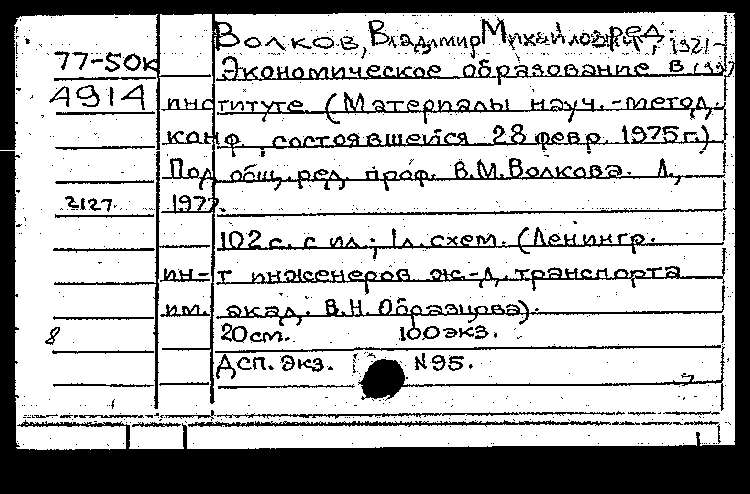 Волков, Владимир Михайлович, ред. 1921-
77-50к Экономическое образование в 1997
4914 институте (Материалы науч.-метод.
конф. состоявшейся 28 февр. 1975г.)
Под общ. ред. проф. В.М.Волкова. Л.,
2127. 1977.
102с. с ил.; 1л.схем. (Ленингр.
ин-т инженеров ж-д. транспорта
им. акад. В.Н.Образцова).
8 20см. 100экз.
Дсп. экз. N95.